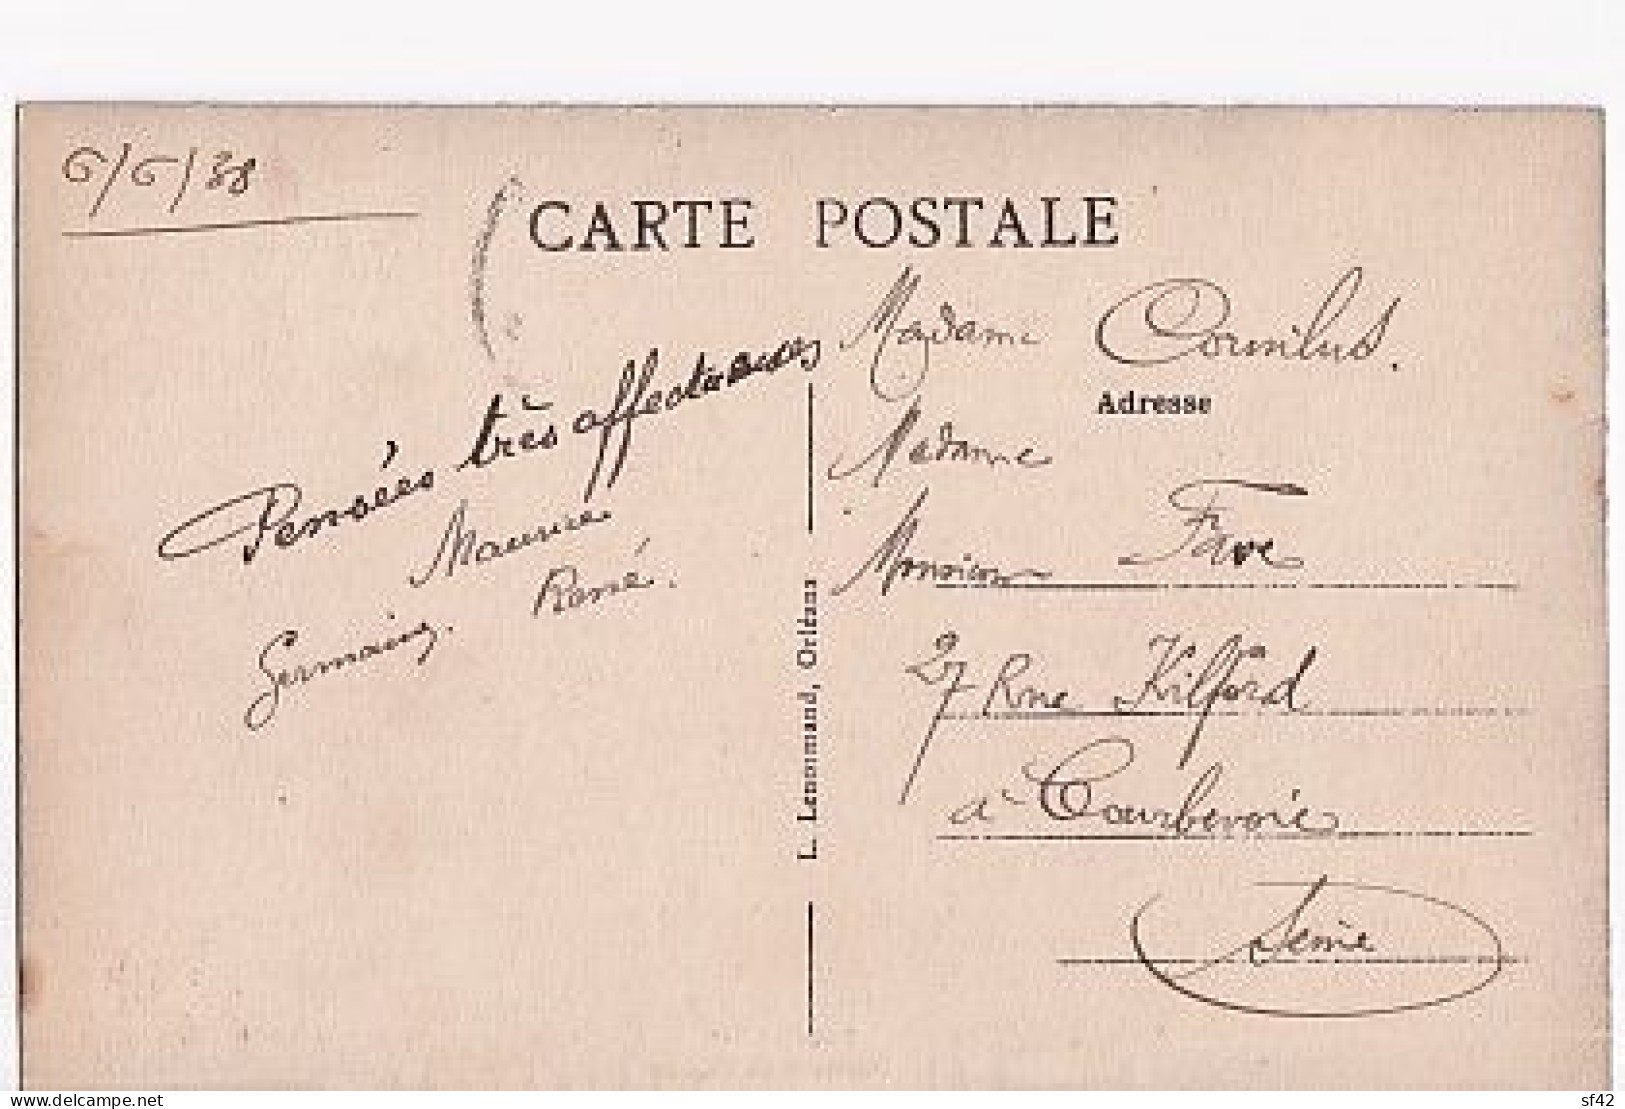 6/6/38
CARTE POSTALE
Madame Cornilus.
Adresse
Pensées très affectueuses
Maurice
René.
Germaine.
Madame
Monsieur Fave
27 Rue Kilford
à Courbevoie
Seine
L. Lenormand, Orléans
www.delcampe.net
sf42